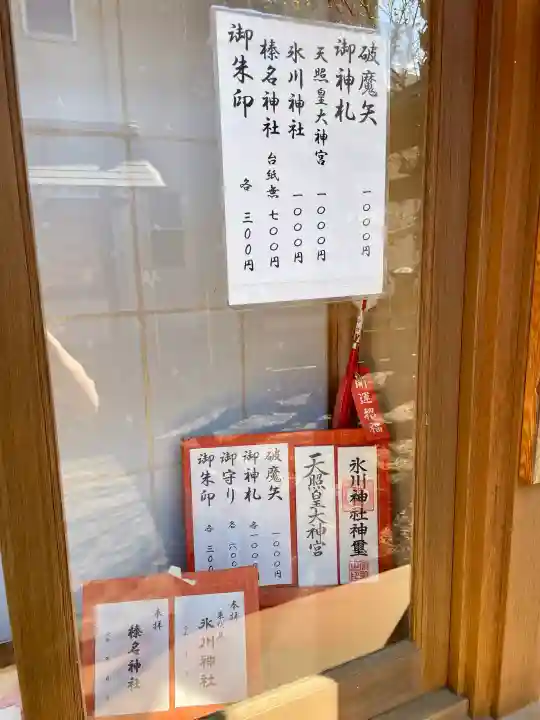 破魔矢 一〇〇〇円
御神札
天照皇大神宮 一〇〇〇円
氷川神社 一〇〇〇円
榛名神社 台紙無 七〇〇円
御朱印 各 三〇〇円
開運招福
氷川神社神璽
天照皇大神宮
破魔矢 一〇〇〇円
御神札 各一〇〇
御守り 各 六〇〇
御朱印 各 三〇〇
奉拝
氷川神社
奉拝
榛名神社